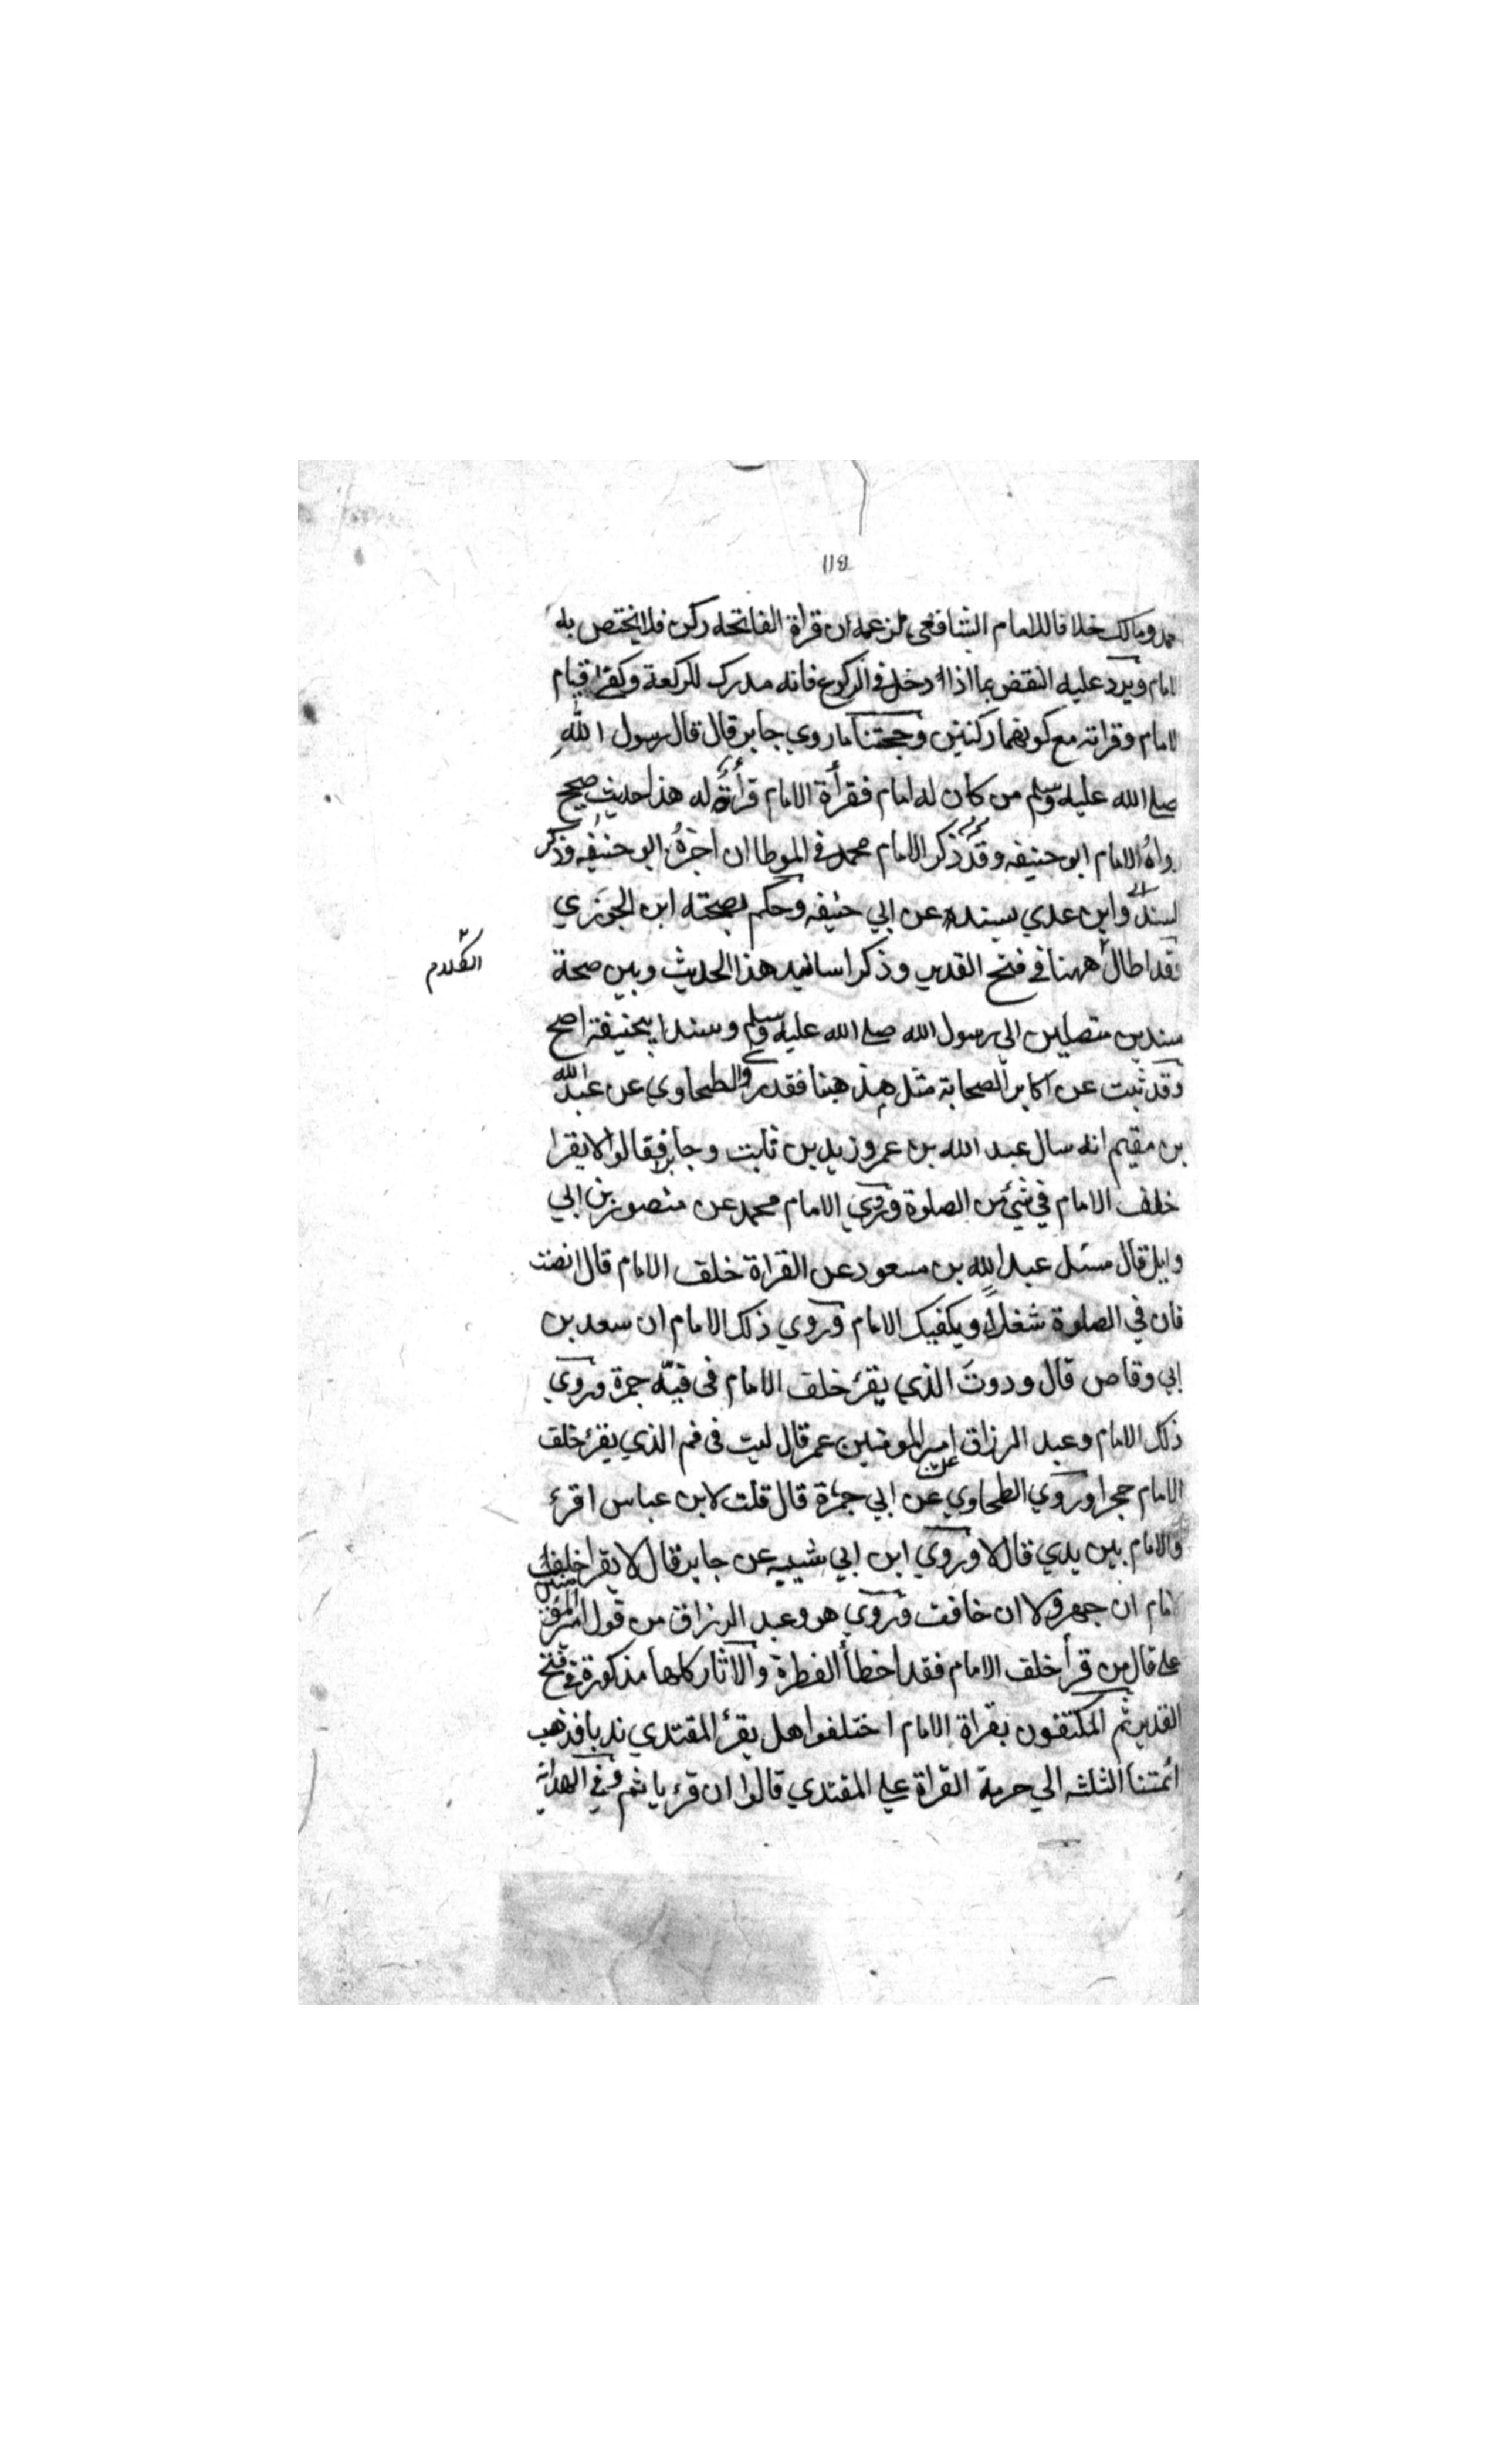 ١١٤
محمد ومالك خلافا للامام الشافعى لزعمه ان قراة الفاتحه ركن فلا يختص به
امام ويرد عليه النقض بما اذا دخل في الركوع فانه مدرك للركعة وكفى قيام
الامام وقراته مع كونهما ركنين وحجتنا ما روي جابر قال قال رسول الله
صلے الله عليه وسلم من كان له امام فقرأة الامام قرأة له هذا حديث صحيح
رواه الامام ابو حنيفه وقد ذكر الامام محمد في الموطا ان اخبره ابو حنيفه وذكر
لسنده وابن عدي بسنده عن ابي حنيفه وحكم بصحته ابن الجوزي
فقد اطال ههنا في فتح القدير وذكر اسانيد هذا الحديث وبين صحة
الكلام
سندين متصلين الي رسول الله صلے الله عليه وسلم وسند ابيحنيفة اصح
وقد ثبت عن اكابر الصحابة مثل هذ هنا فقد روي الطحاوي عن عبد الله
بن مقيم انه سال عبد الله بن عمر وزيد بن ثابت وجابر فقالوا لا يقرا
خلف الامام في شئ من الصلوة وروي الامام محمد عن منصور بن ابي
وايل قال سئل عبد الله بن مسعود عن القراة خلف الامام قال انصت
فان في الصلوة شغلاً ويكفيك الامام وروي ذلك الامام ان سعد بن
ابي وقاص قال وددت الذي يقرء خلف الامام فى فيه جمرة وروي
ذلك الامام وعبد الرزاق امير المومنين عمر قال ليت فى فم الذي يقرء خلف
عن
الامام حجرا وروي الطحاوي عن ابي جمرة قال قلت لابن عباس اقرء
والامام بين يدي قال لا وروي ابن ابي شيبه عن جابر قال لا يقرا خلف
الامام ان جهر ولا ان خافت وروي هو وعبد الرزاق من قول امير المومنين
علے قال من قرأ خلف الامام فقد اخطأ الفطرة والآثار كلها مذكورة في فتح
القدير ثم المكتفون بقراة الامام اختلفوا هل يقرء المقتدي ندبا فذهب
ائمتنا الثلثه الي حرمة القراة علے المقتدي قالوا ان قرء ياثم وفي الهداية